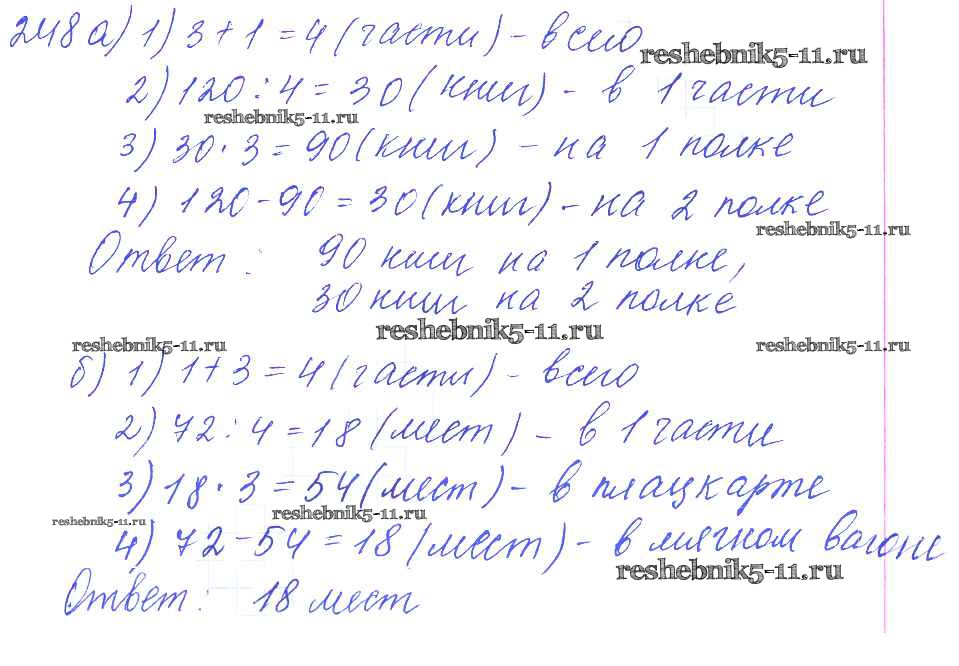 248 а) 1) 3 + 1 = 4 (части) - всего
reshebnik5-11.ru
2) 120 : 4 = 30 (книг) - в 1 части
reshebnik5-11.ru
3) 30 · 3 = 90 (книг) - на 1 полке
4) 120 - 90 = 30 (книг) - на 2 полке
reshebnik5-11.ru
Ответ: 90 книг на 1 полке,
30 книг на 2 полке
reshebnik5-11.ru
reshebnik5-11.ru
reshebnik5-11.ru
б) 1) 1 + 3 = 4 (части) - всего
2) 72 : 4 = 18 (мест) - в 1 части
3) 18 · 3 = 54 (мест) - в плацкарте
reshebnik5-11.ru
reshebnik5-11.ru
4) 72 - 54 = 18 (мест) - в мягком вагоне
reshebnik5-11.ru
Ответ: 18 мест